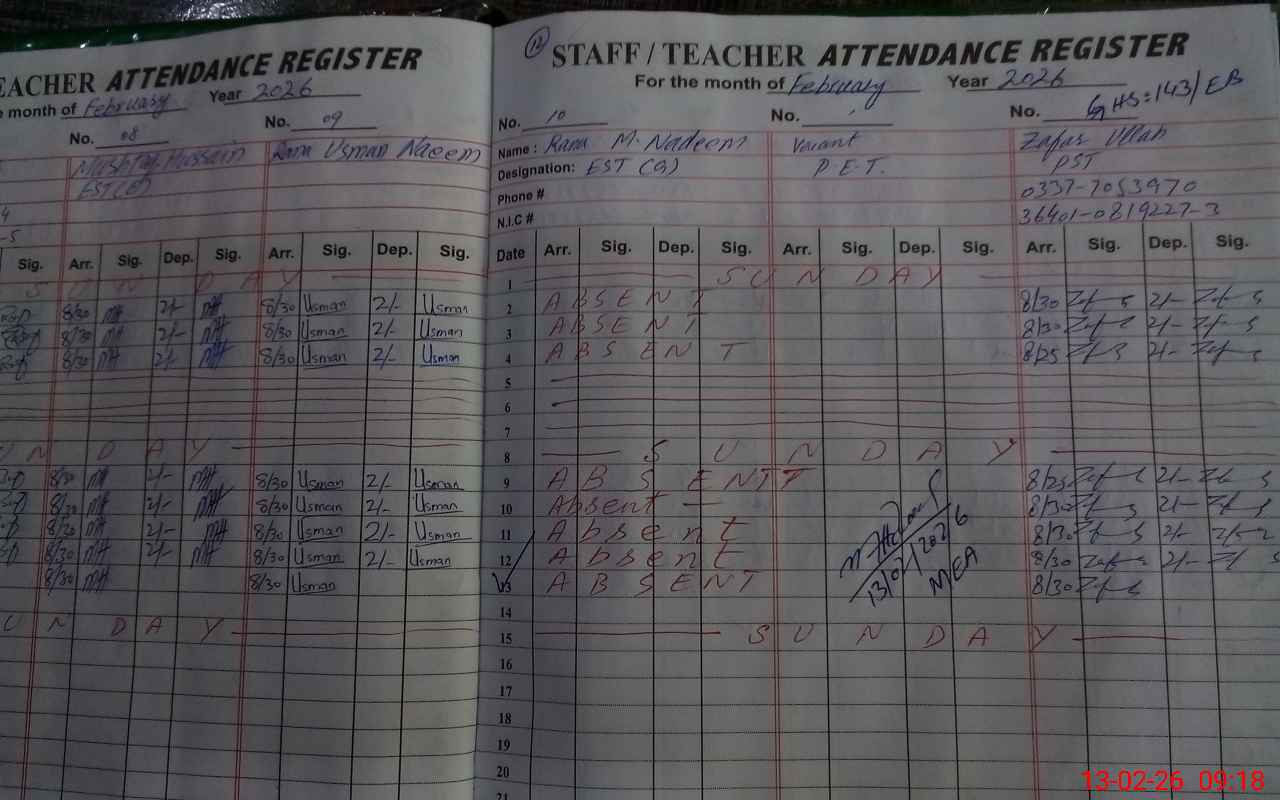 EACHER ATTENDANCE REGISTER
month of February Year 2026
No. 08 No. 09
Mushtaq Hussain Rana Usman Naeem
EST(E)
4
-5
Sig. Arr. Sig. Dep. Sig. Arr. Sig. Dep. Sig.
S U N D A Y
8/30 MH 2/- MH 8/30 Usman 2/- Usman
8/30 MH 2/- MH 8/30 Usman 2/- Usman
8/30 MH 2/- MH 8/30 Usman 2/- Usman
U N D A Y
8/30 MH 2/- MH 8/30 Usman 2/- Usman
8/30 MH 2/- MH 8/30 Usman 2/- Usman
8/30 MH 2/- MH 8/30 Usman 2/- Usman
8/30 MH 2/- MH 8/30 Usman 2/- Usman
8/30 MH 8/30 Usman
U N D A Y
12 STAFF / TEACHER ATTENDANCE REGISTER
For the month of February Year 2026
No. 10 No. No. GHS=143/EB
Name : Rana M. Nadeem Vacant Zafar Ullah
Designation: EST (G) P.E.T. PST
Phone # 0337-7053970
N.I.C # 36401-0819227-3
Date Arr. Sig. Dep. Sig. Arr. Sig. Dep. Sig. Arr. Sig. Dep. Sig.
1 S U N D A Y
2 A B S E N T 8/30 2/-
3 A B S E N T 8/30 2/-
4 A B S E N T 8/25 2/-
5
6
7
8 S U N D A Y
9 A B S E N T T 8/25 2/-
10 Absent 8/30 2/-
11 Absent 8/30 2/-
12 Absent 8/30 2/-
13 A B S E N T 8/30
13/02/2026
MEA
14
15 S U N D A Y
16
17
18
19
20
21
13-02-26 09:18